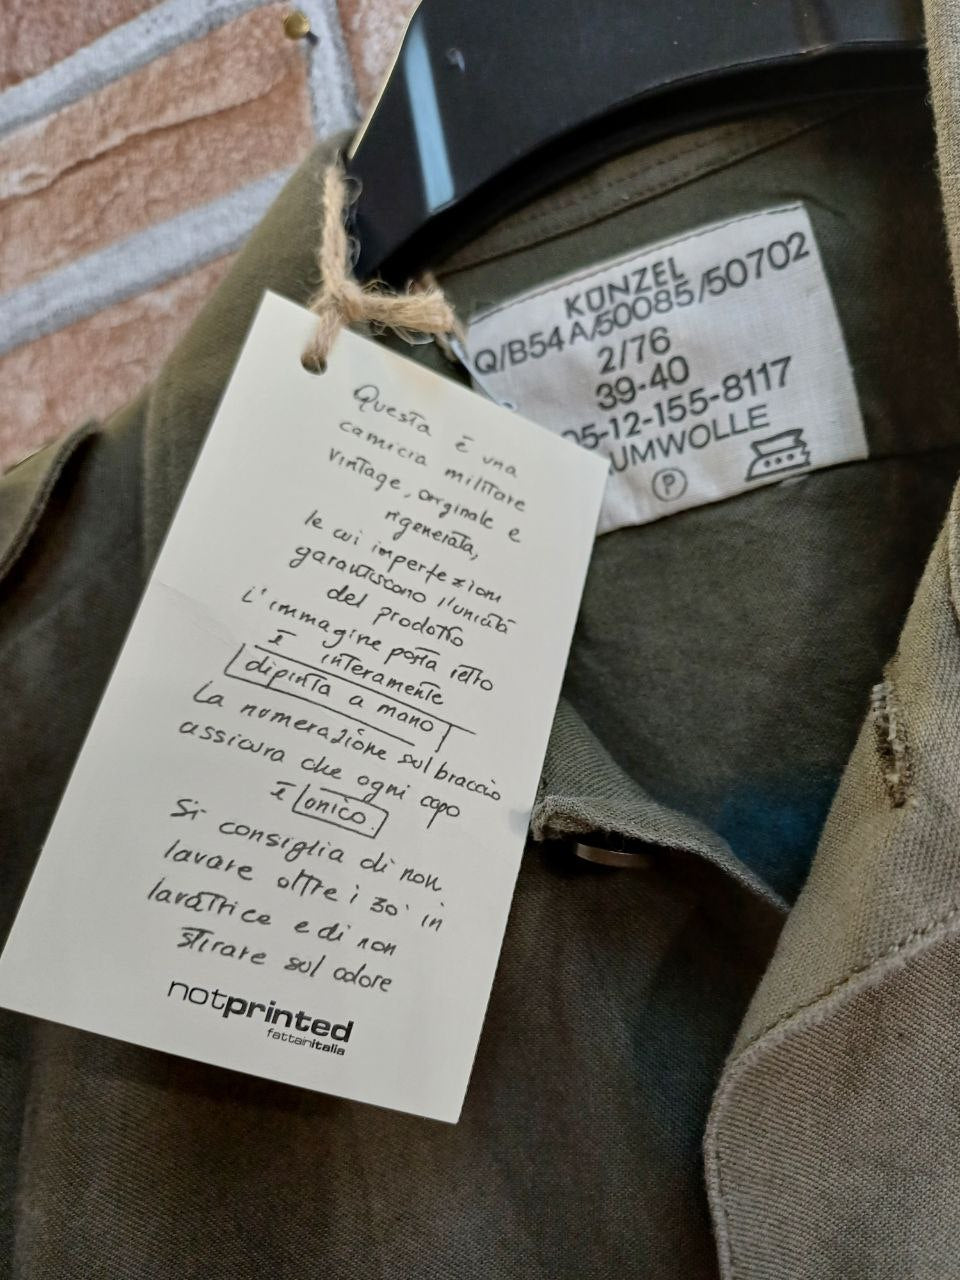 KÜNZEL
Q/B54 A/50085/50702
2/76
39-40
05-12-155-8117
UMWOLLE
P
Questa è una
camicia militare
vintage, originale e
rigenerata,
le cui imperfezioni
garantiscono l'unicità
del prodotto
L'immagine posta retto
È interamente
dipinta a mano
La numerazione sul braccio
assicura che ogni capo
È unico.
Si consiglia di non
lavare oltre i 30° in
lavatrice e di non
stirare sul colore
notprinted
fattainitalia